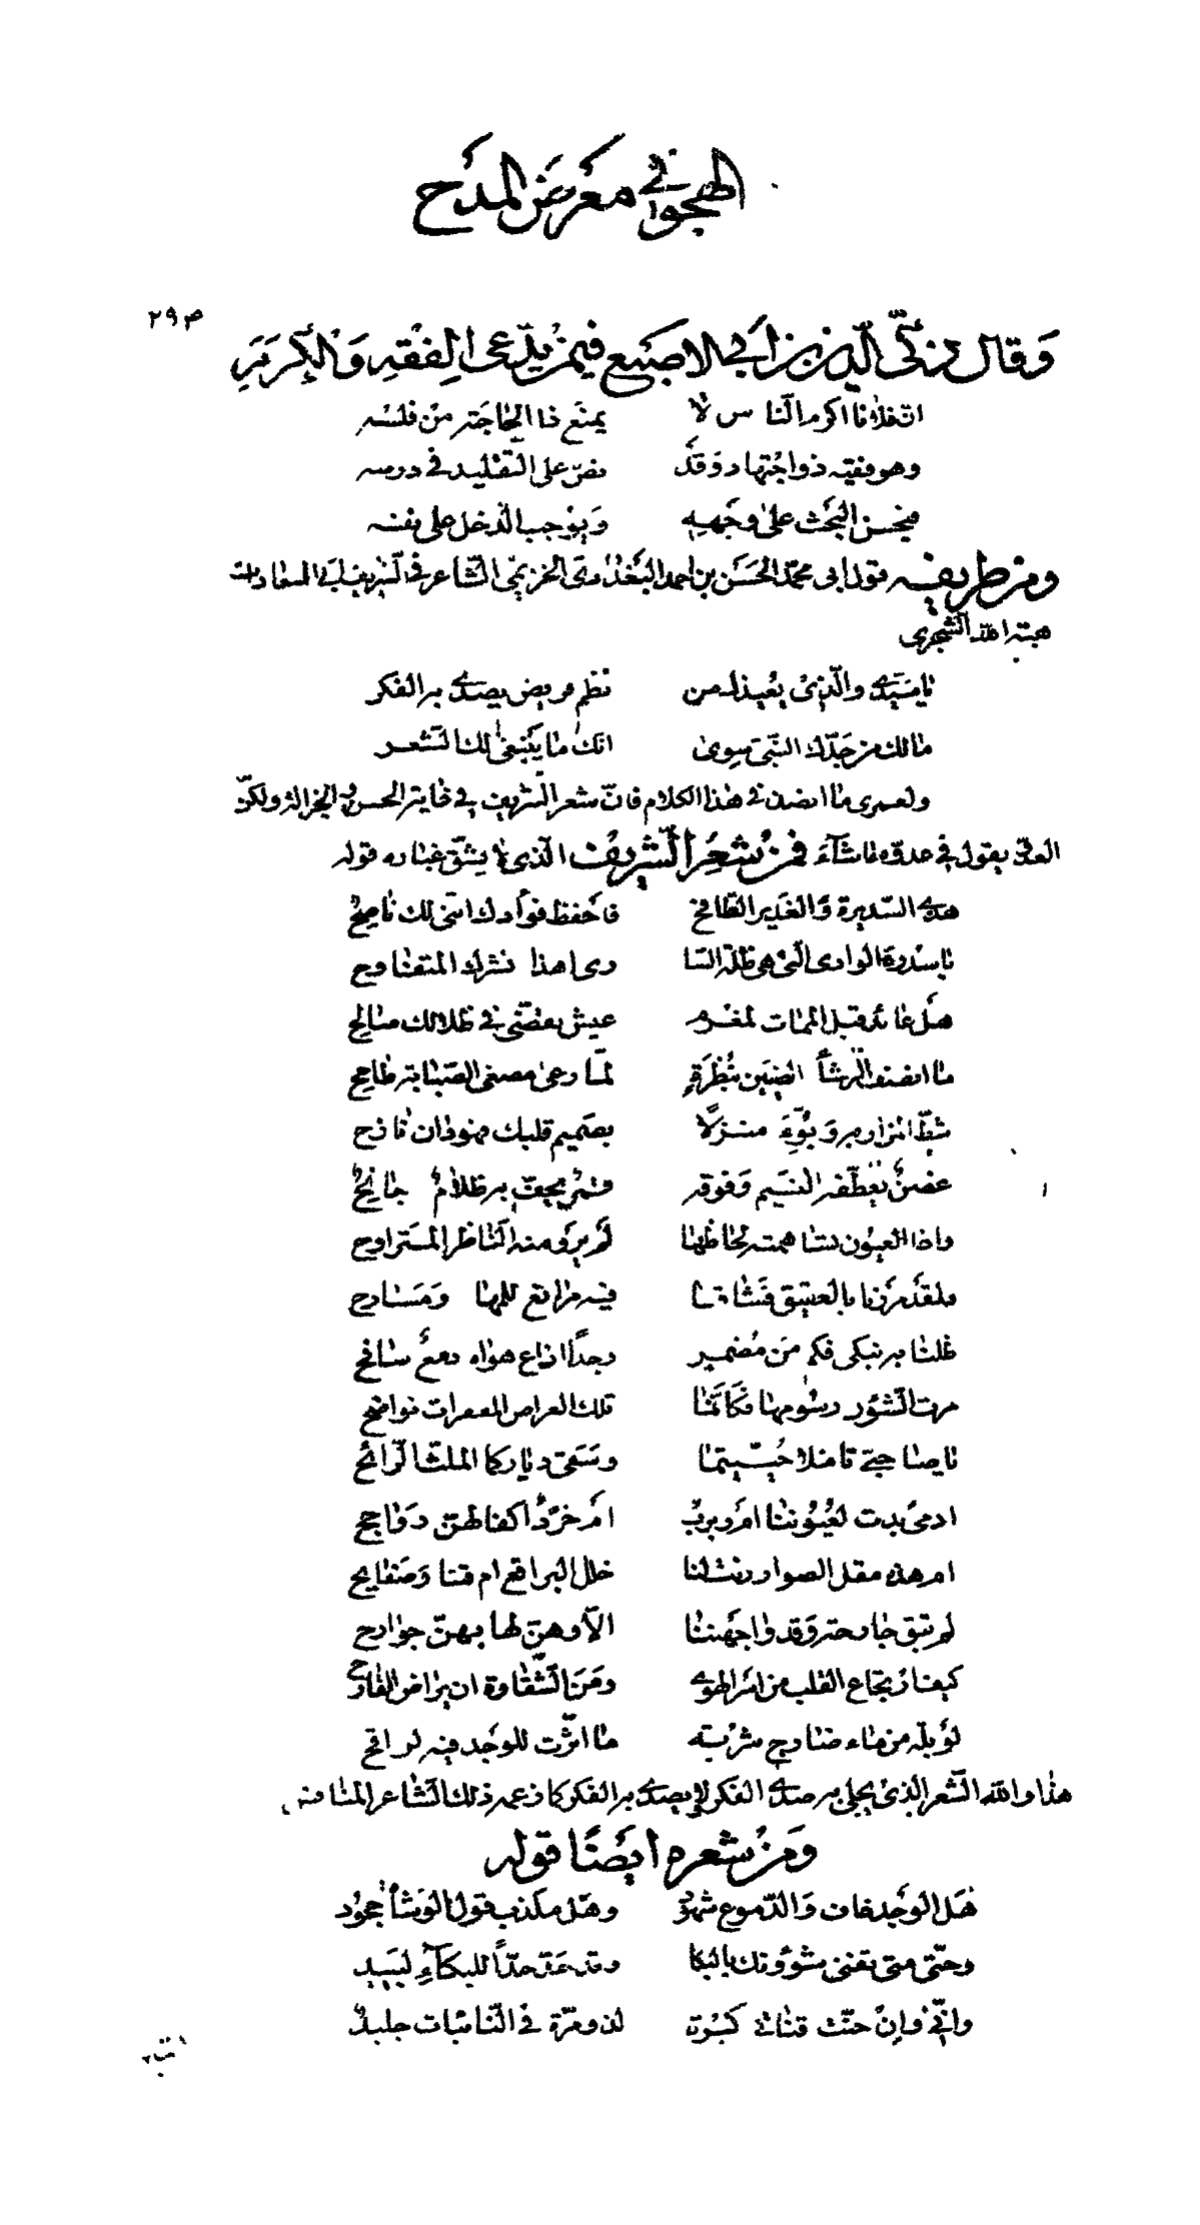 الهجو في معرض المدح
٢٩٣
وقال زكيّ الدين بن أبي الاصبع فيمن يدّعى الفقه والكرم
ان فلانا اكرم النّاس لا يمنع ذا الحاجة من فلسه
وهو فقيه ذو اجتهاد وقد نصّ على التقليد في درسه
فيحسن البحث على وجهه ويوجب الدخل على نفسه
ومن ظريفه قول ابى محمّد الحسن بن احمد البغدادى الشّاعر في الشريف ابى السعادات
هبة الله الشجرى
يا سيّدى والّذى يعيذك من نظم قريض يصدى به الفكر
مالك من جدّك النبيّ سوى انّك ما ينبغى لك الشعر
ولعمرى ما انصف في هذا الكلام فانّ شعر الشريف في غاية الحسن والجزالة ولكنّ
العدوّ يقول في عدوّه ما شآء فمن شعر الشّريف الّذى لا يشقّ غباره قوله
هذى السّديرة والغدير الطّافح فاحفظ فؤادك انّنى لك ناصح
يا سدرة الوادى الّتى هى ظلّة السّا رى اهذا نشرك المتفاوح
هل عائد قبل الممات لمغرم عيش يقضّى في ظلالك صالح
ما انصف الرشأ الضنين بنظرة لمّا دعى مصغى الصّبابة طامح
شطّ المزار به وبوّء منزلا بصميم قلبك فهو دان نازح
غصن يعطّفه النسيم وفوقه قمر يحفّ به ظلام جانح
واذا العيون تساهمته لحاظها لم يرو منه النّاظر المتراوح
ولقد مررنا بالعقيق فشاقنا فيه مراتع للمها ومسارح
ظلنا به نبكى فكم من مضمر وجدا اذاع هواه دمع سافح
مرت الشّؤن رسومها فكانّما تلك العراص المقفرات نواضح
يا صاحبيّ تاملا حيّيتما وسقى دياركما الملثّ الرّائح
ادمى بدت لعيوننا ام ربرب ام خرّد اكفالهنّ رواجح
ام هذه مقل الصوار رنت لنا خلل البراقع ام قنا وصفايح
لم تبق جارحة وقد واجهننا الّا وهنّ لها بهنّ جوارح
كيف ارتجاع القلب من اسر الهوى ومن الشّقاوة ان يراض القارح
لو بلّه من ماء ضارج شربة ما اثّرت للوجد فيه لوافح
هذا والله الشّعر الّذى يجلى به صدى الفكر لا يصدى به الفكر كما زعم ذلك الشّاعر
ومن شعره أيضًا قوله
هل الوجد خاف والدّموع شهود وهل مكذب قول الوشاة جحود
وحتّى متى تفنى شؤونك بالبكا وقد حدّ حدّا للبكآء لبيد
وانّى وإن حنّت قناتى كبرة لذو مرّة في النّائبات جليد